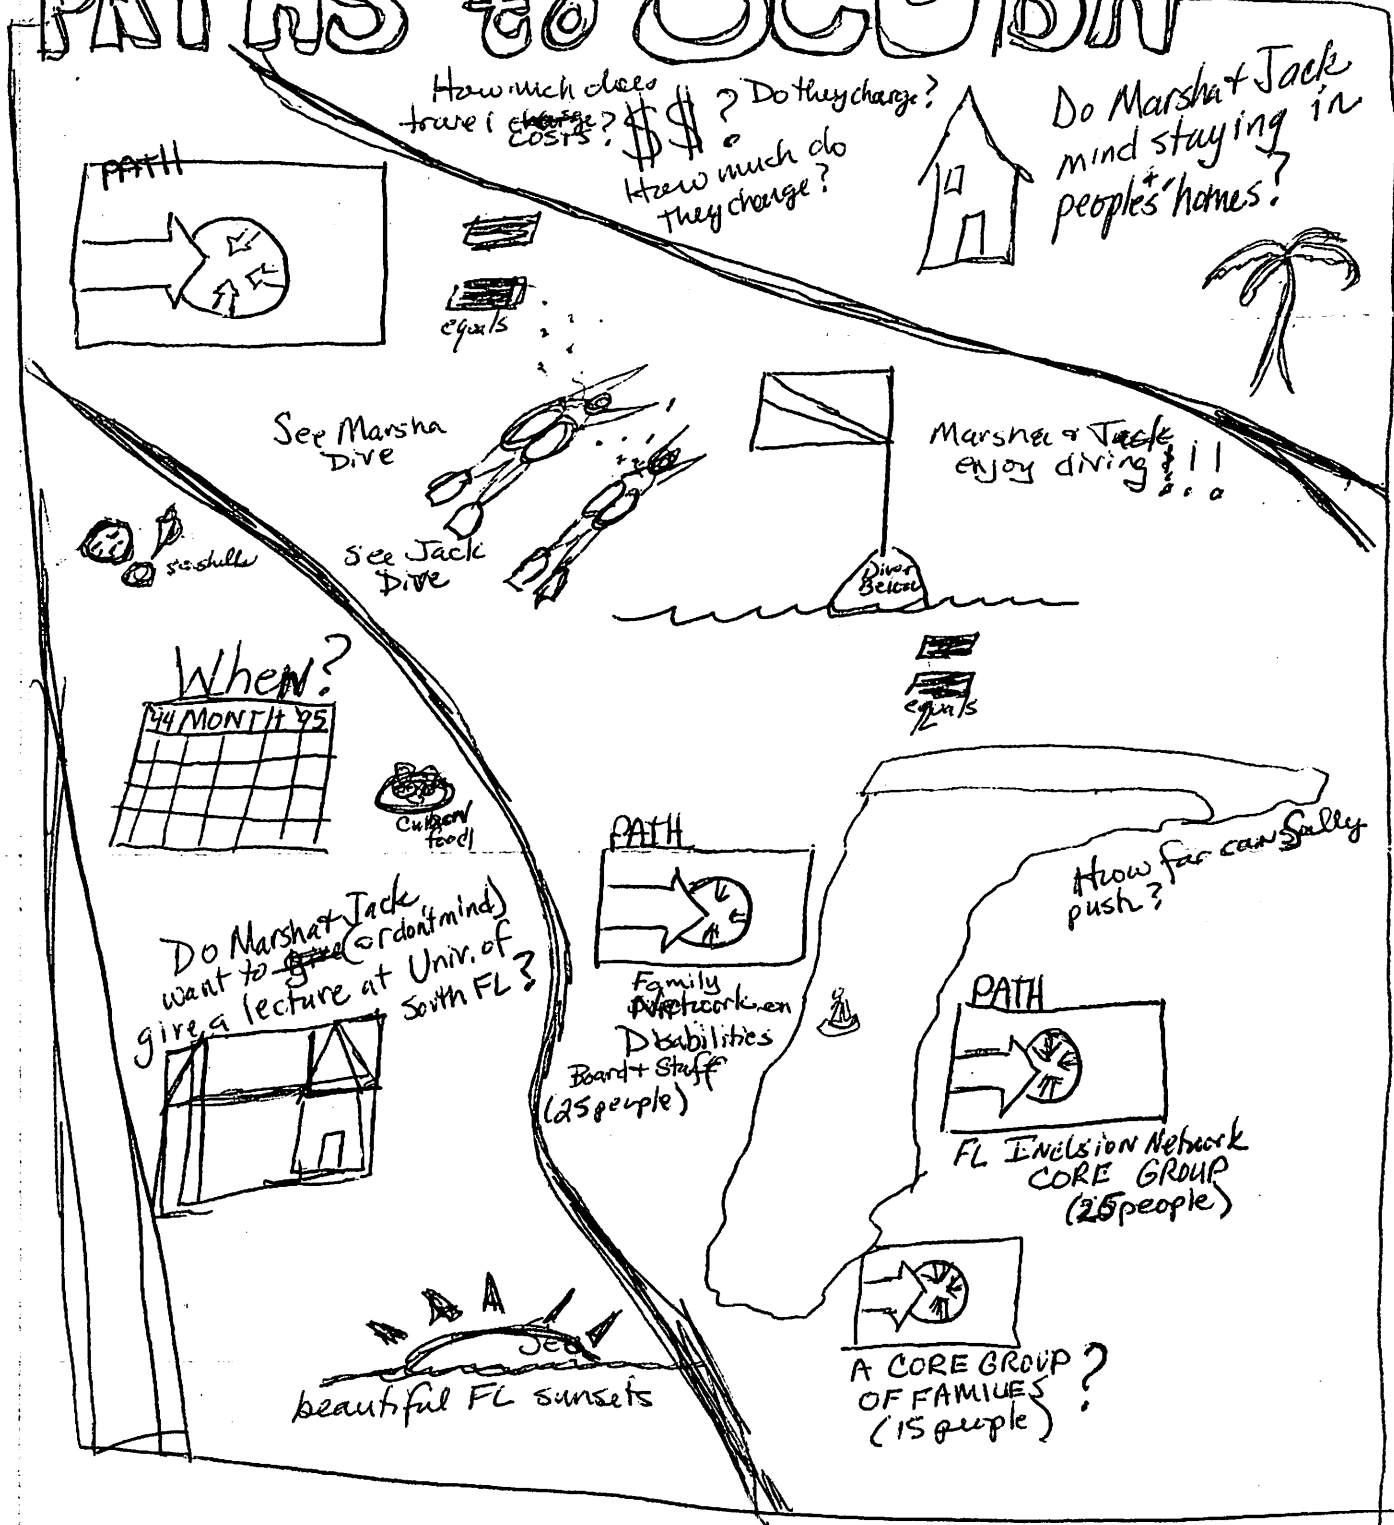 PATHS to SCUBA
How much does
travel costs?
$$?
Do they charge?
How much do
they charge?
Do Marsha & Jack
mind staying in
people's homes?
PATH
equals
See Marsha
Dive
See Jack
Dive
Marsha & Jack
enjoy diving!!!
Diver
Below
equals
seashells
When?
'94 MONTH '95
Cuban
food
Do Marsha & Jack
want to (or don't mind)
give a lecture at Univ. of
South FL?
PATH
Family
Network on
Disabilities
Board & Staff
(25 people)
How far can Sally
push?
PATH
FL Inclsion Network
CORE GROUP
(25 people)
A CORE GROUP
OF FAMILIES ?
(15 people)
beautiful FL sunsets